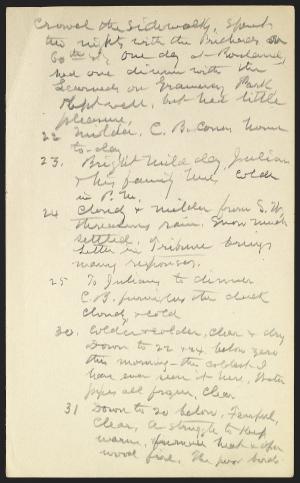 Crowd the sidewalk, spent
the nights with the Prichards on
60th St, one day at Roseland,
had one dinner with the
Learneds on Gramercy Park
slept well, but had little
pleasure,
22 Milder, C. B. comes home
to-day
23. Bright mild day, Julian
& his family here, cold
in P.M.
24 Cloudy & milder from S.W.
threatens rain. Snow much
settled. Letter in Tribune brings
many responses.
25 To Julians to dinner
C.B. furnishes the duck
cloudy & cold
30. Colder & colder, clear & dry
Down to 22 & 24 below zero
this morning - the coldest I
have ever seen it here, Water
pipes all frozen, clear
31 Down to 20 below, Fearful,
Clear, A struggle to keep
warm, furnace heat & open
wood fire. The poor birds